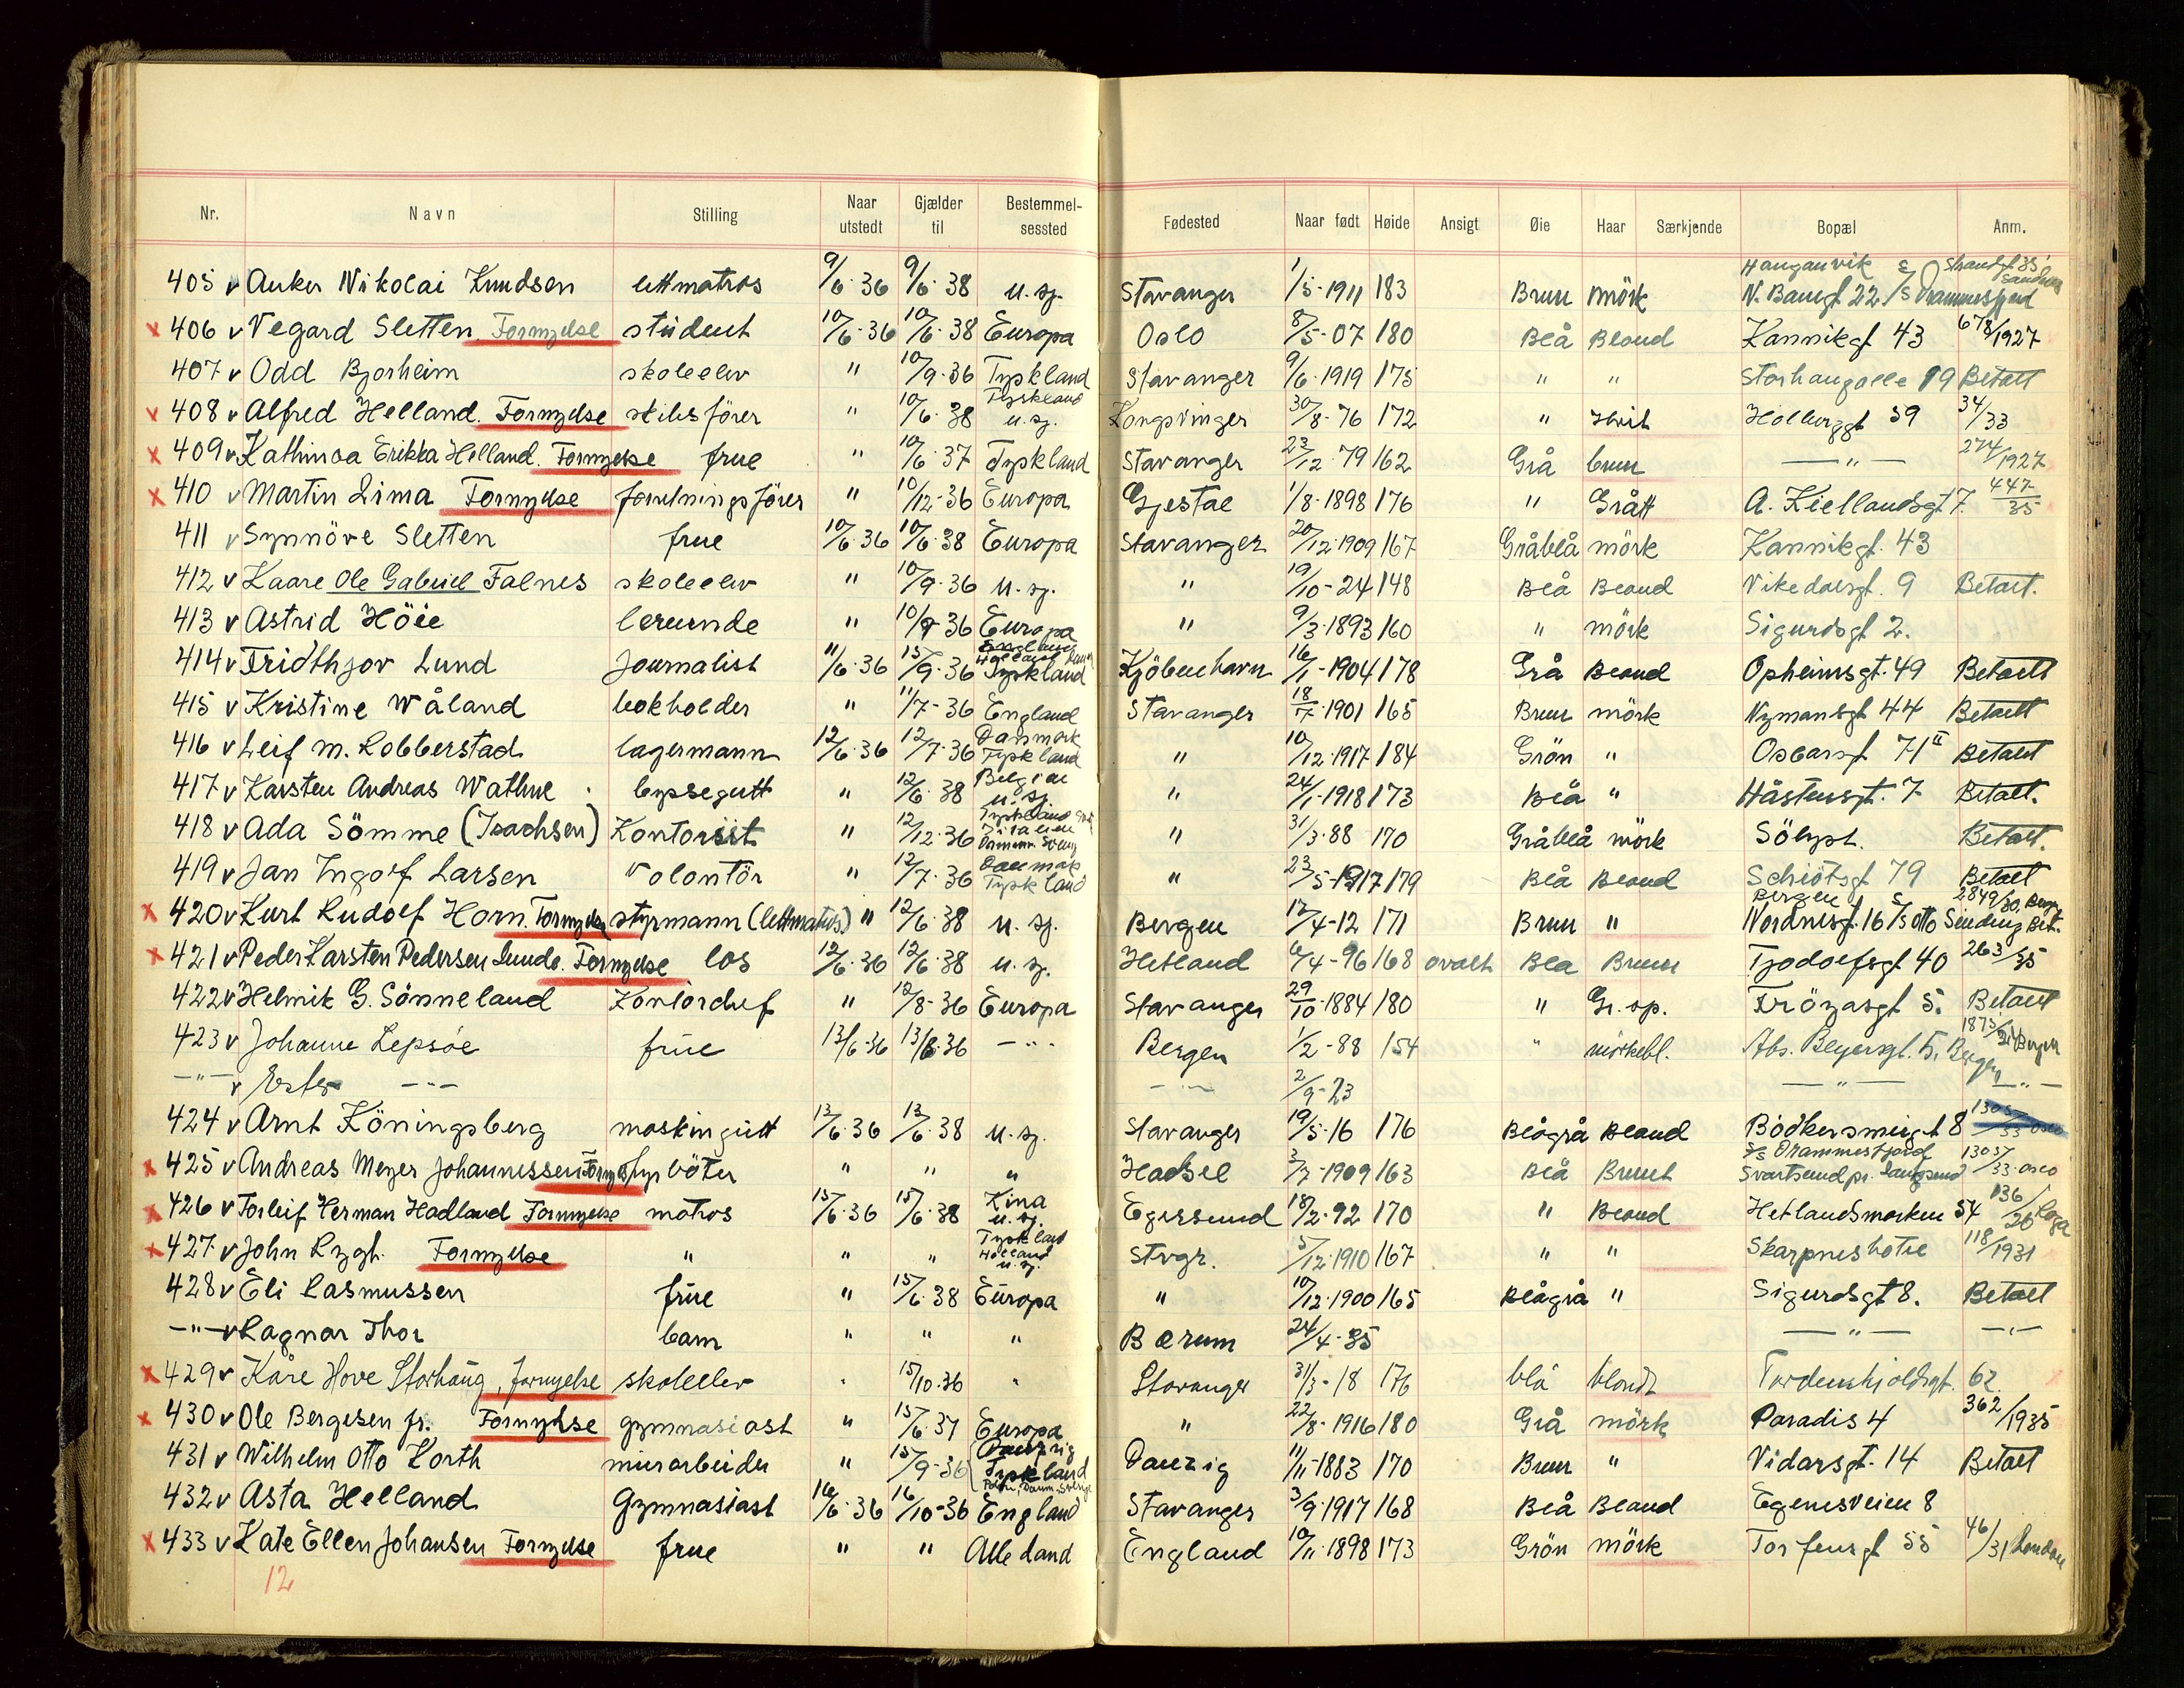 Nr. Navn Stilling Naar utstedt Gjælder til Bestemmelsessted Fødested Naar født Høide Ansigt Øie Haar Særkjende Bopæl Anm.
405 v Anker Nikolai Knudsen lettmatros 9/6-36 9/6-38 u. sj. Stavanger 1/5-1911 183 Brun mörk N. Banegt. 22.
x 406 v Vegard Sletten. Fornyelse student 10/6-36 10/6-38 Europa Oslo 8/5-07 180 Blå Blond Kannikgt 43 678/1927
407 v Odd Bjorheim skoleelev " 10/9-36 Tyskland Stavanger 9/6-1919 175 " " Storhaugalle 19 Betalt
x 408 v Alfred Helland. Fornyelse skibsförer " 10/6-38 Tyskland u. sj. Kongsvinger 30/8-76 172 " Hvit Holberggt 39 34/33
x 409 v Kathinca Erikka Helland. Fornyelse frue " 10/6-37 Tyskland Stavanger 23/12-79 162 Grå brun — " — 274/1927
x 410 v Martin Lima Fornyelse forretningsförer " 10/12-36 Europa Gjestal 1/8-1898 176 " Grått A. Kiellandsgt 7. 447/35
411 v Synnöve Sletten frue 10/6-36 10/6-38 Europa Stavanger 20/12-1909 167 Gråblå mörk Kannikgt. 43
412 v Kaare Ole Gabriel Falnes skoleelev " 10/9-36 u. sj. " 19/10-24 148 Blå Blond Vikedalsgt. 9 Betalt.
413 v Astrid Höie lererinde " 10/9-36 Europa " 9/3-1893 160 " mörk Sigurdsgt 2.
414 v Fridthjov Lund Journalist 11/6-36 15/9-36 England Holland Tyskland Kjöbenhavn 16/1-1904 178 Grå Blond Opheimsgt. 49 Betalt
415 v Kristine Wåland bokholder " 11/7-36 England Stavanger 18/7-1901 165 Brun mörk Nymansgt 44 Betalt
416 v Leif M. Robberstad lagermann 12/6-36 12/7-36 Danmark Tyskland " 10/12-1917 184 Grön " Oscarsgt 71 II Betalt
417 v Karsten Andreas Wathne byssegutt " 12/6-38 Belgia u. sj. " 24/1-1918 173 Blå " Håsteinsgt. 7 Betalt.
418 v Ada Sömme (Isachsen) Kontorist " 12/12-36 Tyskland Italien " 31/3-88 170 Gråblå mörk Sölyst. Betalt.
419 v Jan Ingolf Larsen Volontör " 12/7-36 Danmark Tyskland " 23/5-1917 179 Blå Blond Schiötzgt 79 Betalt
x 420 v Kurt Rudolf Horn. Fornyelse styrmann (lettmatros) " 12/6-38 u. sj. Bergen 12/4-12 171 Brun " Bergen Nordnesgt. 16 S/S Otto Sinding Bet. 2849/30, Bergen
x 421 v Peder Karsten Pedersen Lunde. Fornyelse los 12/6-36 12/6-38 u. sj. Hetland 6/4-96 168 ovalt Blå Brun Tjodolfsgt 40 263/35
422 v Helmik G. Sönneland Kontorchef " 12/8-36 Europa Stavanger 29/10-1884 180 " Gr. sp. Fröyasgt 5. Betalt
423 v Johanne Lepsöe frue 13/6-36 13/8-36 — " — Bergen 1/2-88 154 " mörkebl. Abs. Beyersgt. 5, Bergen
— " — v Ester — " — 2/9-23 — " — — " —
424 v Arnt Köningsberg maskingutt 13/6-36 13/6-38 u. sj. Stavanger 19/5-16 176 Blågrå Blond Bödkersmuigt 8
x 425 v Andreas Meyer Johannessen Fornyelse fyrböter " " " Hadsel 3/7-1909 163 Blå Brunt S/S Drammensfjord Svartsund pr. Laugsund 1305/33 Oslo
x 426 v Torleif Herman Hadland Fornyelse matros 15/6-36 15/6-38 Kina u. sj. Egersund 18/2-92 170 " Blond Hetlandsmarken 54 136/26
x 427 v John Rygh. Fornyelse " " " Tyskland Holland u. sj. Stvgr. 5/12-1910 167 " " Skarpneshotel 118/1931
428 v Eli Rasmussen frue " 15/6-38 Europa " 10/12-1900 165 Blågrå " Sigurdsgt 8. Betalt
— " — v Ragnar Thor barn " " " Bærum 24/4-35 — " — — " —
x 429 v Kåre Hove Storhaug, fornyelse skoleelev " 15/10-36 " Stavanger 31/3-18 176 blå blondt Tordenskjoldsgt. 62.
x 430 v Ole Bergesen jr. Fornyelse gymnasiast " 15/6-37 Europa " 22/8-1916 180 Grå mörk Paradis 4 362/1935
431 v Wilhelm Otto Korth murarbeider " 15/9-36 Danzig Tyskland Danzig 11/11-1883 170 Brun " Vidarsgt. 14 Betalt
432 v Asta Helland Gymnasiast 16/6-36 16/10-36 England Stavanger 3/9-1917 168 Blå Blond Egenesveien 8
x 433 v Kate Ellen Johansen Fornyelse frue " " Alle land England 10/11-1898 173 Grön mörk Torfinsgt 55 46/31 London
12